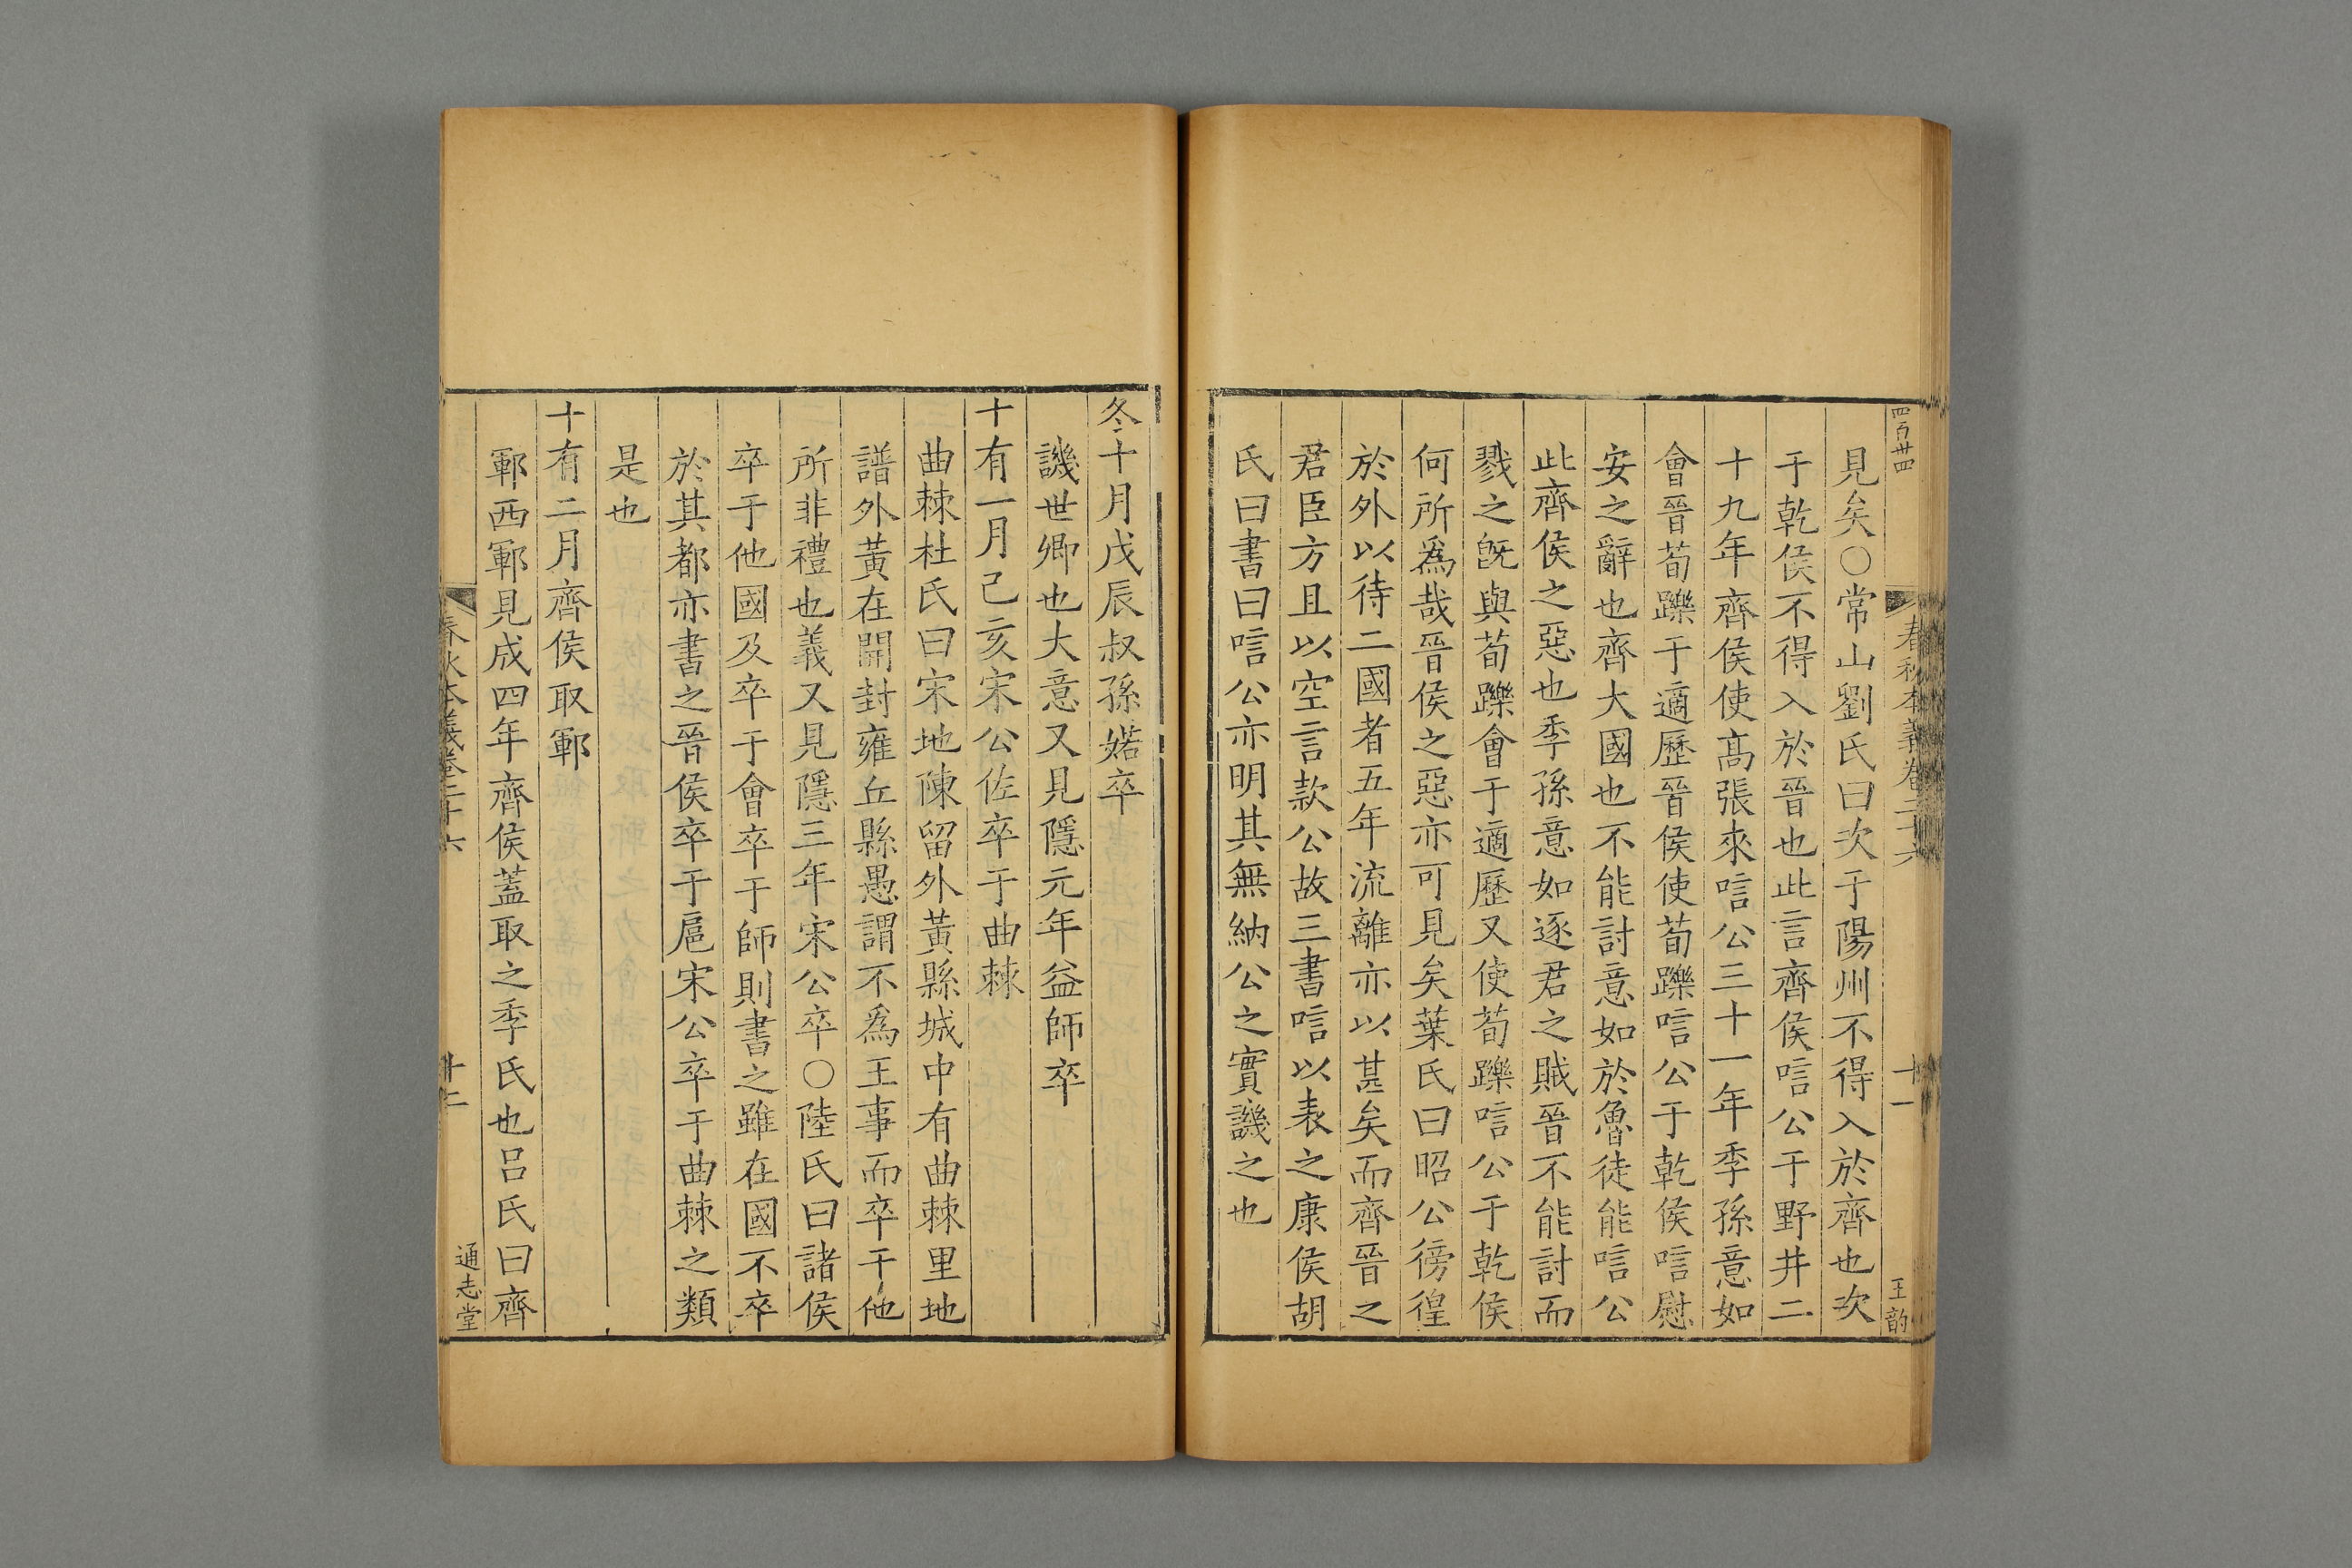 四百卅四
春秋本義卷二十六
十一
王韵
見矣○常山劉氏曰次于陽州不得入於齊也次
于乾侯不得入於晉也此言齊侯唁公于野井二
十九年齊侯使髙張來唁公三十一年季孫意如
會晉荀躒于適歷晉侯使荀躒唁公于乾侯唁慰
安之辭也齊大國也不能討意如於魯徒能唁公
此齊侯之惡也季孫意如逐君之賊晉不能討而
戮之旣與荀躒會于適歷又使荀躒唁公于乾侯
何所爲哉晉侯之惡亦可見矣葉氏曰昭公徬徨
於外以待二國者五年流離亦以甚矣而齊晉之
君臣方且以空言款公故三書唁以表之康侯胡
氏曰書曰唁公亦明其無納公之實譏之也
冬十月戊辰叔孫婼卒
譏世卿也大意又見隱元年益師卒
十有一月己亥宋公佐卒于曲棘
曲棘杜氏曰宋地陳留外黃縣城中有曲棘里地
譜外黃在開封雍丘縣愚謂不爲王事而卒于他
所非禮也義又見隱三年宋公卒○陸氏曰諸侯
卒于他國及卒于會卒于師則書之雖在國不卒
於其都亦書之晉侯卒于扈宋公卒于曲棘之類
是也
十有二月齊侯取鄆
鄆西鄆見成四年齊侯蓋取之季氏也呂氏曰齊
春秋本義卷二十六
十二
通志堂